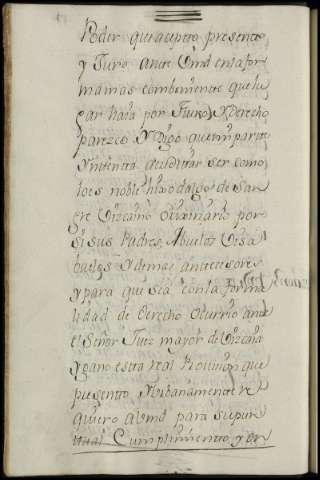 Poder que acepto, presento
y Juro ante Vmd en la for
ma mas combeniente que lu
gar haia por fuero, y Derecho
parezco Y Digo que mi parte
Yntenta acreditar ser como
lo es noble hixo dalgo de San
gre Vizcaino originario por
si sus Padres, Abuelos Visa
buelos Y demas antecesores
y para que sea con la forma
lidad de Derecho ocurrio ante
el Señor Juez mayor de Vizcaia
y gano esta real Provision que
presento Urbanamente re
quiero a Vmd para su pun
tual Cumplimiento, y en